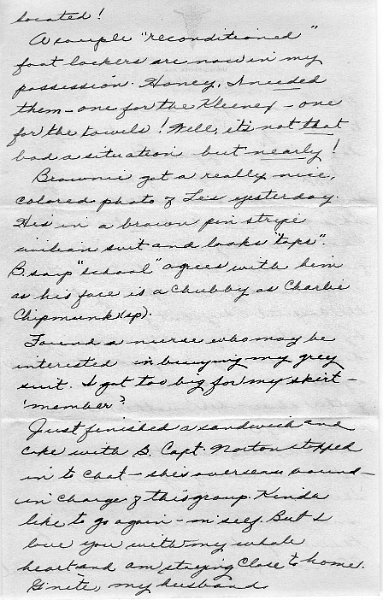 located!
A couple "reconditioned"
foot lockers are now in my
possession. Honey, I needed
them - one for the Kleenex - one
for the towels! Well, it's not that
bad a situation but nearly!
Brownie got a really nice,
colored photo of Le's yesterday.
He's in a brown pin stripe
civilian suit and looks "tops".
B. says "school" agrees with him
as his face is a chubby as Charlie
Chipmunk (sp).
Found a nurse who may be
interested in buying my grey
suit. I got too big for my skirt -
'member?
Just finished a sandwich and
coke with B. Capt. Norton stopped
in to chat - she's overseas bound -
in charge of this group. Kinda
like to go again - m'self. But I
love you with my whole
heart and am staying close to home.
G'nite, my husband.